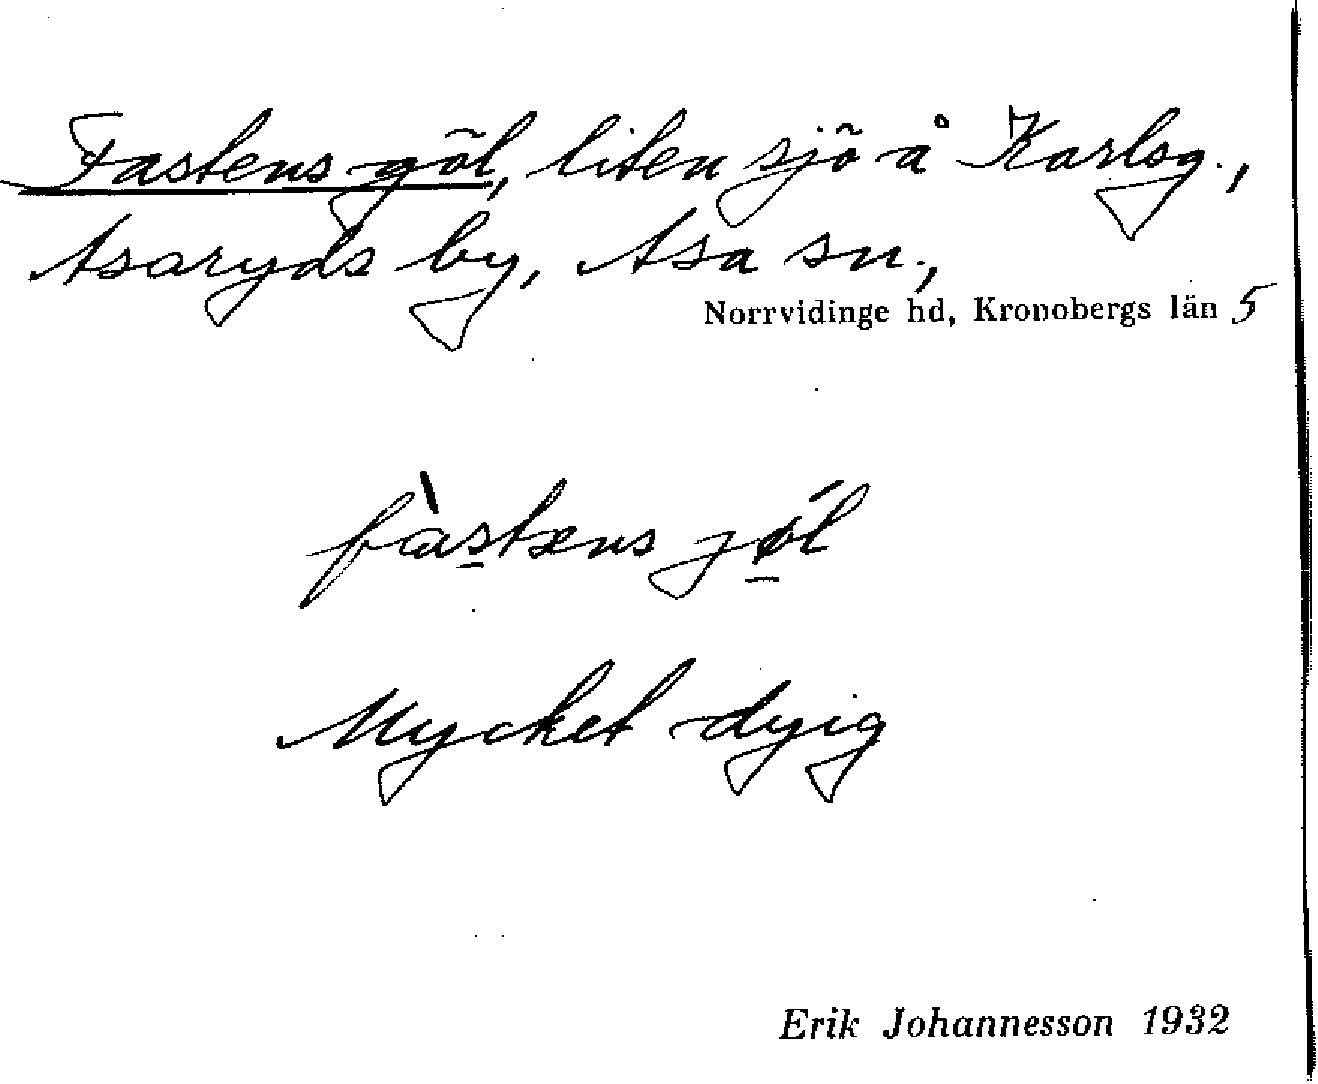 Fastens göl, liten sjö å Karlsg.,
Asaryds by, Asa sn.,
Norrvidinge hd, Kronobergs län 5
fàstæns jǿl
Mycket dyig
Erik Johannesson 1932